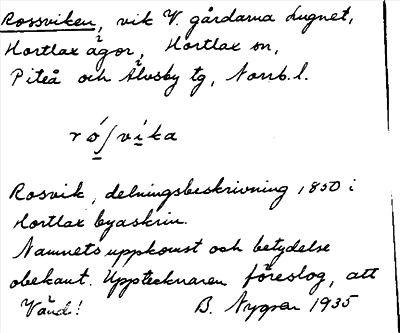 Rossviken, vik V. gårdarna Lugnet,
Hortlax ägor, Hortlax sn,
Piteå och Älvsby tg, Norrb. l.
ró̱ʃvi̱ka
Rosvik, delningsbeskrivning 1850 i
Hortlax byaskrin.
Namnets uppkomst och betydelse
obekant. Upptecknaren föreslog, att
Vänd! B. Nygren 1935